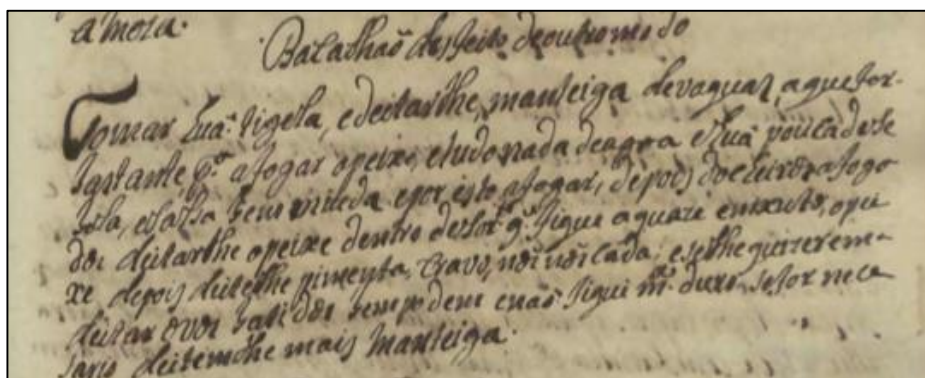 a meza.
Bacalhaõ desfeito de outro modo
Tomar huã tigela, e deitarlhe, manteiga de vaquas, a que for
bastante, pª afogar o peixe, e tudo nada de agoa e huã pouca de se
bola, e salsa bem miuda e por isto afogar, depois do cheiro afoga
dos deitarlhe o peixe dentro de sorte q. fique a quazi enxuto, o pei
xe depois deitelhe pimenta, cravo, nos noscada, e se lhe quizerem
deitar ovos batidos bem podem e naõ fique mto duro, se for nece
sario deitemlhe mais manteiga.